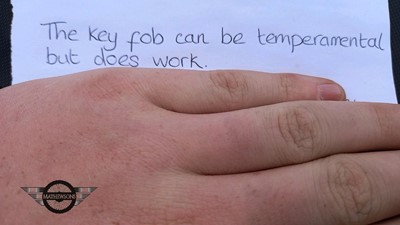 The key fob can be temperamental
but does work.
MATHEWSONS